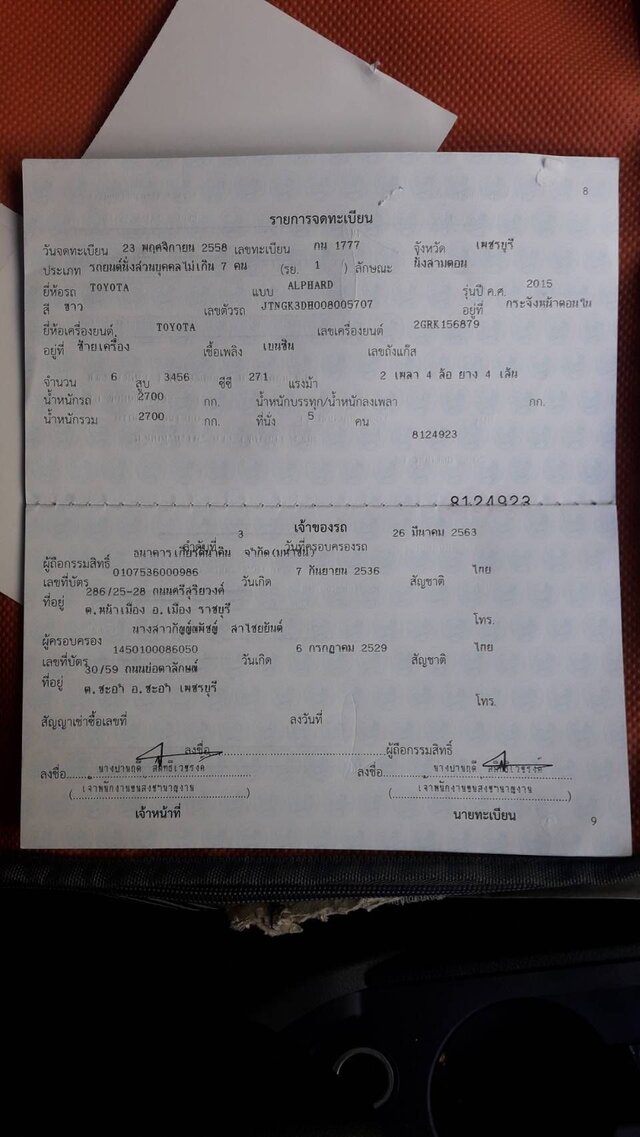 8
รายการจดทะเบียน
วันจดทะเบียน 23 พฤศจิกายน 2558 เลขทะเบียน กน 1777 จังหวัด เพชรบุรี
ประเภท รถยนต์นั่งส่วนบุคคลไม่เกิน 7 คน (รย. 1 ) ลักษณะ นั่งสามตอน
ยี่ห้อรถ TOYOTA แบบ ALPHARD รุ่นปี ค.ศ. 2015
สี ขาว เลขตัวรถ JTNGK3DH008005707 อยู่ที่ กระจังหน้าตอนใน
ยี่ห้อเครื่องยนต์ TOYOTA เลขเครื่องยนต์ 2GRK156879
อยู่ที่ ซ้ายเครื่อง เชื้อเพลิง เบนซิน เลขถังแก๊ส
จำนวน 6 สูบ 3456 ซีซี 271 แรงม้า 2 เพลา 4 ล้อ ยาง 4 เส้น
น้ำหนักรถ 2700 กก. น้ำหนักบรรทุก/น้ำหนักลงเพลา กก.
น้ำหนักรวม 2700 กก. ที่นั่ง 5 คน
8124923
8124923
เจ้าของรถ
ลำดับที่ 3 วันที่ครอบครองรถ 26 มีนาคม 2563
ผู้ถือกรรมสิทธิ์ ธนาคาร เกียรตินาคิน จำกัด (มหาชน)
เลขที่บัตร 0107536000986 วันเกิด 7 กันยายน 2536 สัญชาติ ไทย
ที่อยู่ 286/25-28 ถนนศรีสุริยวงศ์
ต.หน้าเมือง อ.เมือง ราชบุรี โทร.
ผู้ครอบครอง นางสาว สาไชยยันต์
เลขที่บัตร 1450100086050 วันเกิด 6 กรกฎาคม 2529 สัญชาติ ไทย
ที่อยู่ 30/59 ถนนบ่อตาลักษณ์
ต.ชะอำ อ.ชะอำ เพชรบุรี
โทร.
สัญญาเช่าซื้อเลขที่ ลงวันที่
ลงชื่อ ผู้ถือกรรมสิทธิ์
ลงชื่อ นางบานฤดี สิทธิเวชรงค์ ลงชื่อ นางบานฤดี สิทธิเวชรงค์
(เจ้าพนักงานขนส่งชำนาญงาน) (เจ้าพนักงานขนส่งชำนาญงาน)
เจ้าหน้าที่ นายทะเบียน
9